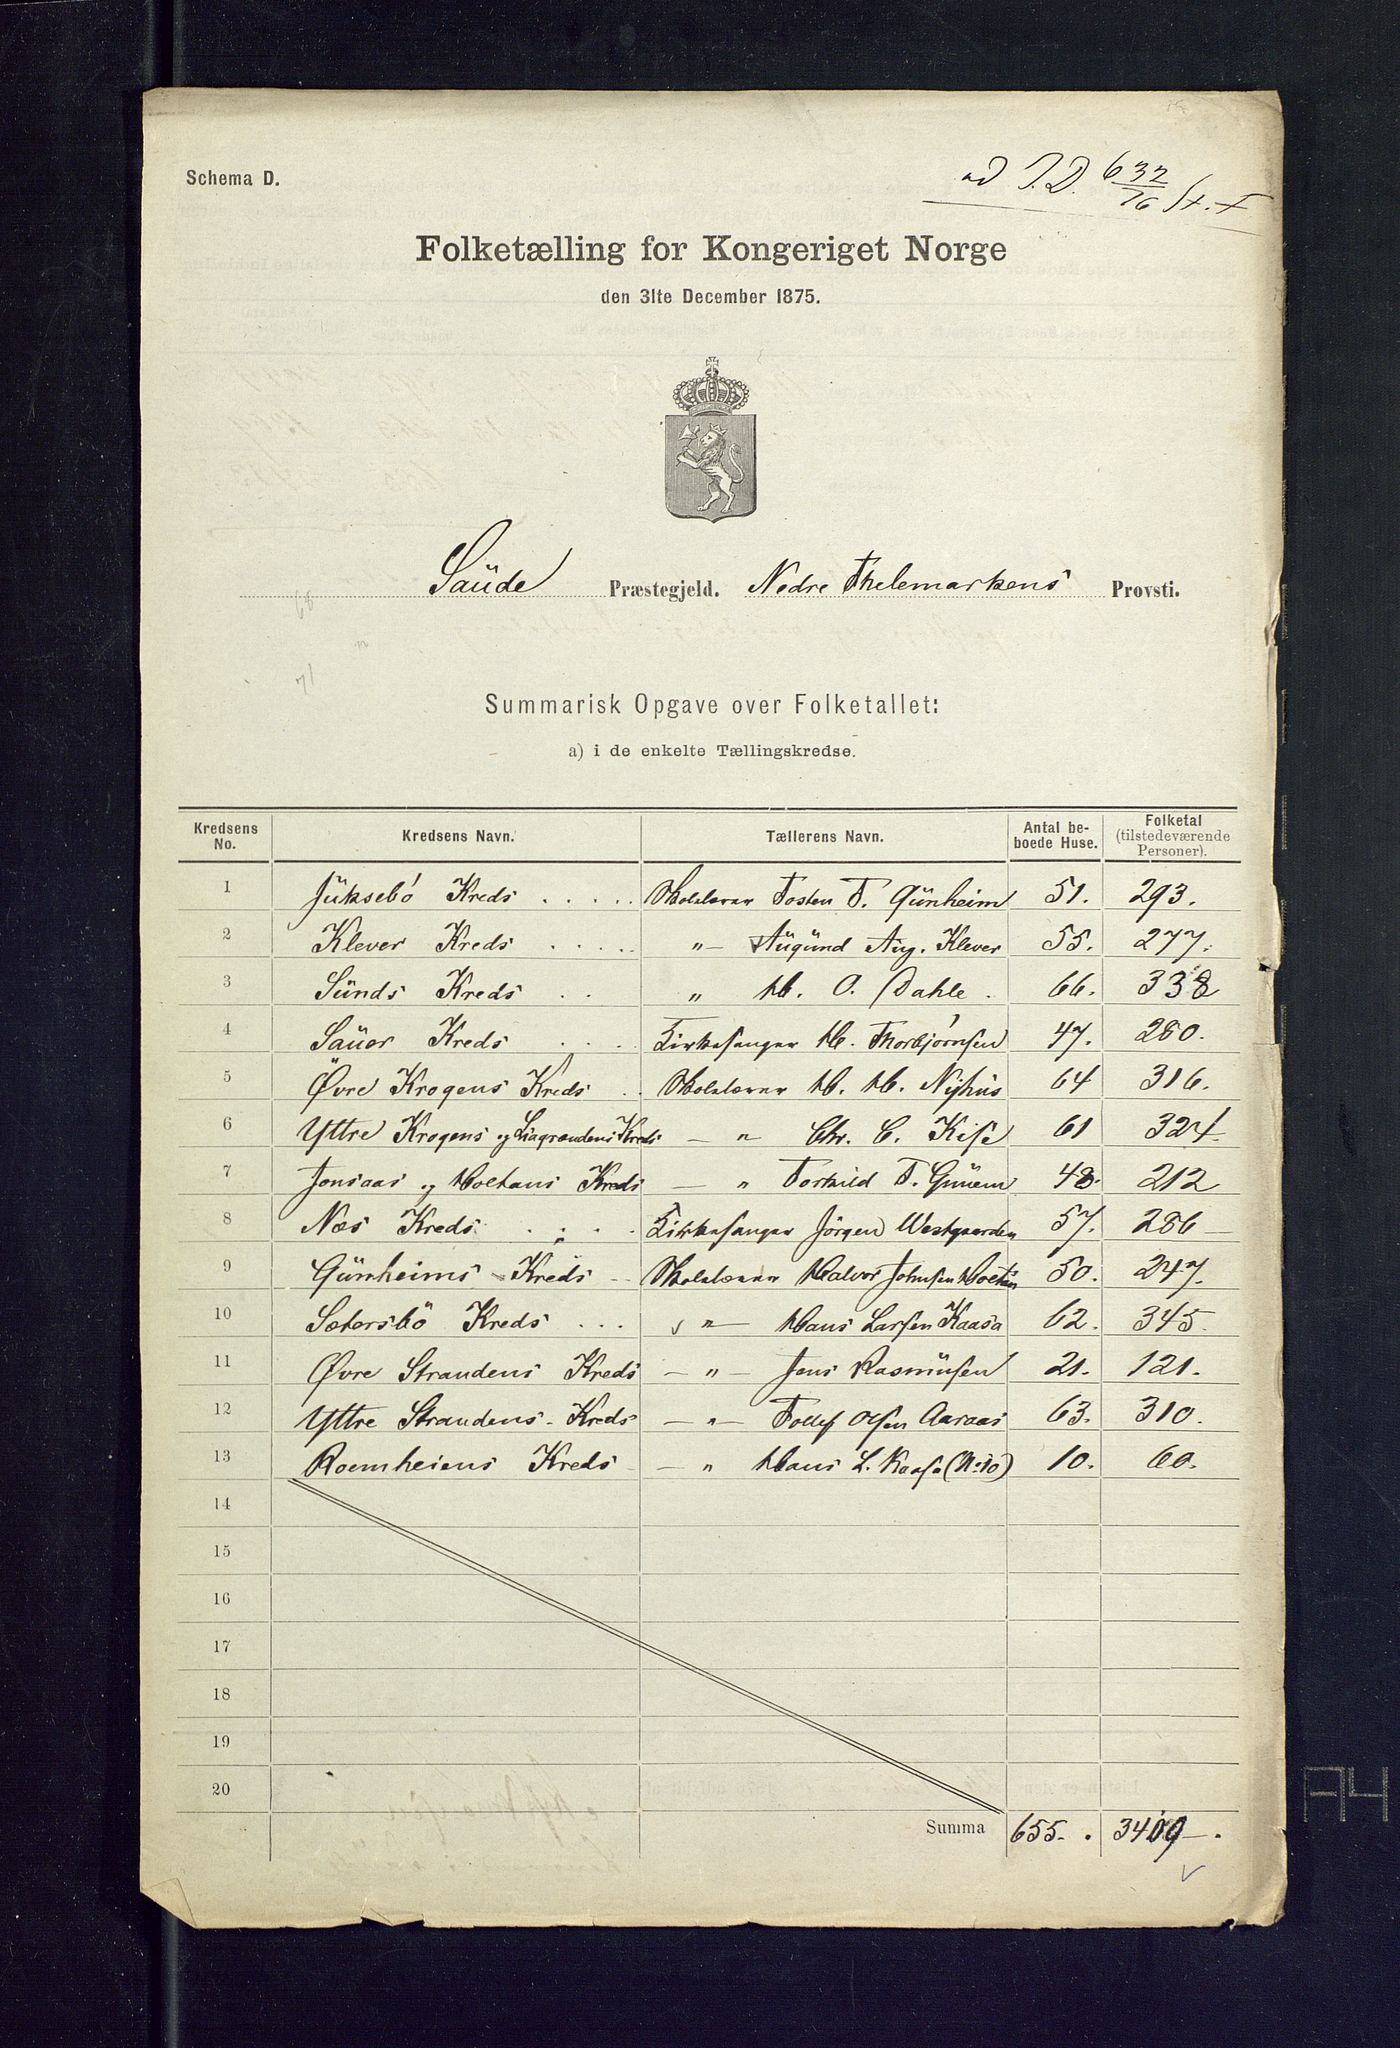 Schema D.
ad J.D. 632/76 St. F
Folketælling for Kongeriget Norge
den 31te December 1875.
Saüde Præstegjeld. Nedre Thelemarkens Provsti.
68
71
Summarisk Opgave over Folketallet:
a) i de enkelte Tællingskredse.
Kredsens No. Kredsens Navn. Tællerens Navn. Antal beboede Huse. Folketal (tilstedeværende Personer).
1 Jüksebö Kreds . . . . . Skolelærer Tosten T. Günheim 51. 293.
2 Klever Kreds . . . . . „ — Aügünd Aug. Klever 55. 277.
3 Sünds Kreds . . „ H. O. Dahle . 66. 338
4 Sauer Kreds . . . . Kirkesanger H. Thorbjörnsen 47. 280.
5 Øvre Krogens Kreds . . Skolelærer H. H. Nyhüs 64 316.
6 Yttre Krogens og Liagrendens Kreds — „ Chr. C. Kise 61 324
7 Jonsaas og Holtans Kreds — „ Torkild T. Günem 48. 212
8 Næs Kreds . . . . Kirkesanger Jörgen Westgaarden 57. 286 —
9 Günheims Kreds — Skolelærer Halvor Johnsen Hoeten 50. 247.
10 Setersbö Kreds . . . „ — Hans Larsen Kaasa 62. 345.
11 Øvre Strandens Kreds — „ — Jens Rasmüsen 21. 121.
12 Yttre Strandens Kreds — „ — Tollef Olsen Aaraas 63. 310.
13 Roemheiens Kreds — — „ Hans L. Kaasa (No 10) 10. 60.
14
15
16
17
18
19
20
Summa 655. . 3409 — .
A4